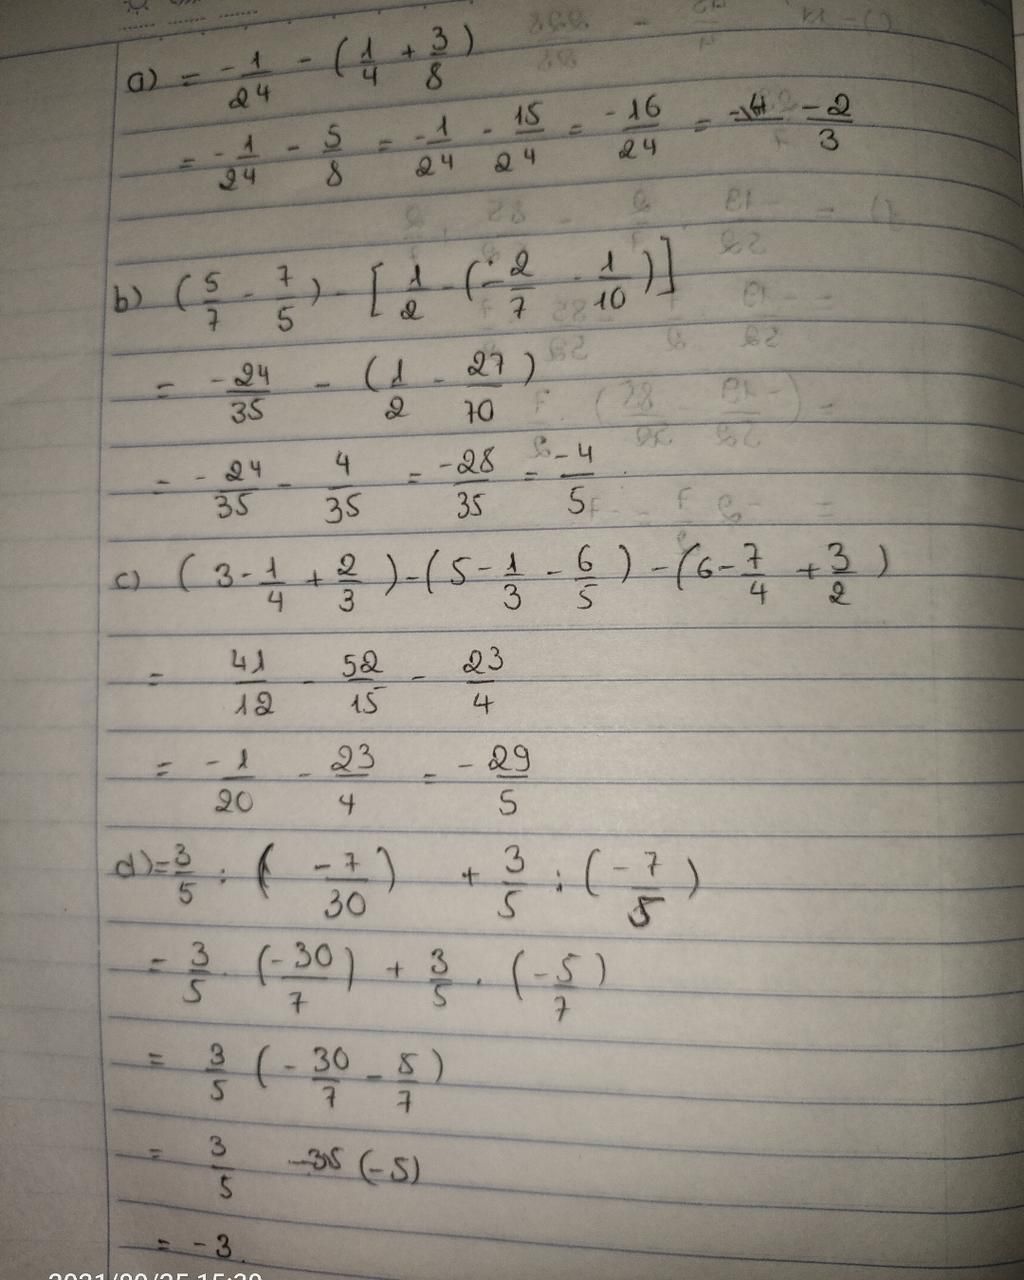 a) = -1/24 - (1/4 + 3/8)
= -1/24 - 5/8 = -1/24 - 15/24 = -16/24 = -2/3
b) (5/7 - 7/5) - [1/2 - (-2/7 - 1/10)]
= -24/35 - (1/2 - 27/70)
= -24/35 - 4/35 = -28/35 = -4/5
c) (3 - 1/4 + 2/3) - (5 - 1/3 - 6/5) - (6 - 7/4 + 3/2)
= 41/12 - 52/15 - 23/4
= -1/20 - 23/4 = -29/5
d) = 3/5 : (-7/30) + 3/5 : (-7/5)
= 3/5 . (-30/7) + 3/5 . (-5/7)
= 3/5 (-30/7 - 5/7)
= 3/5 (-5)
= -3